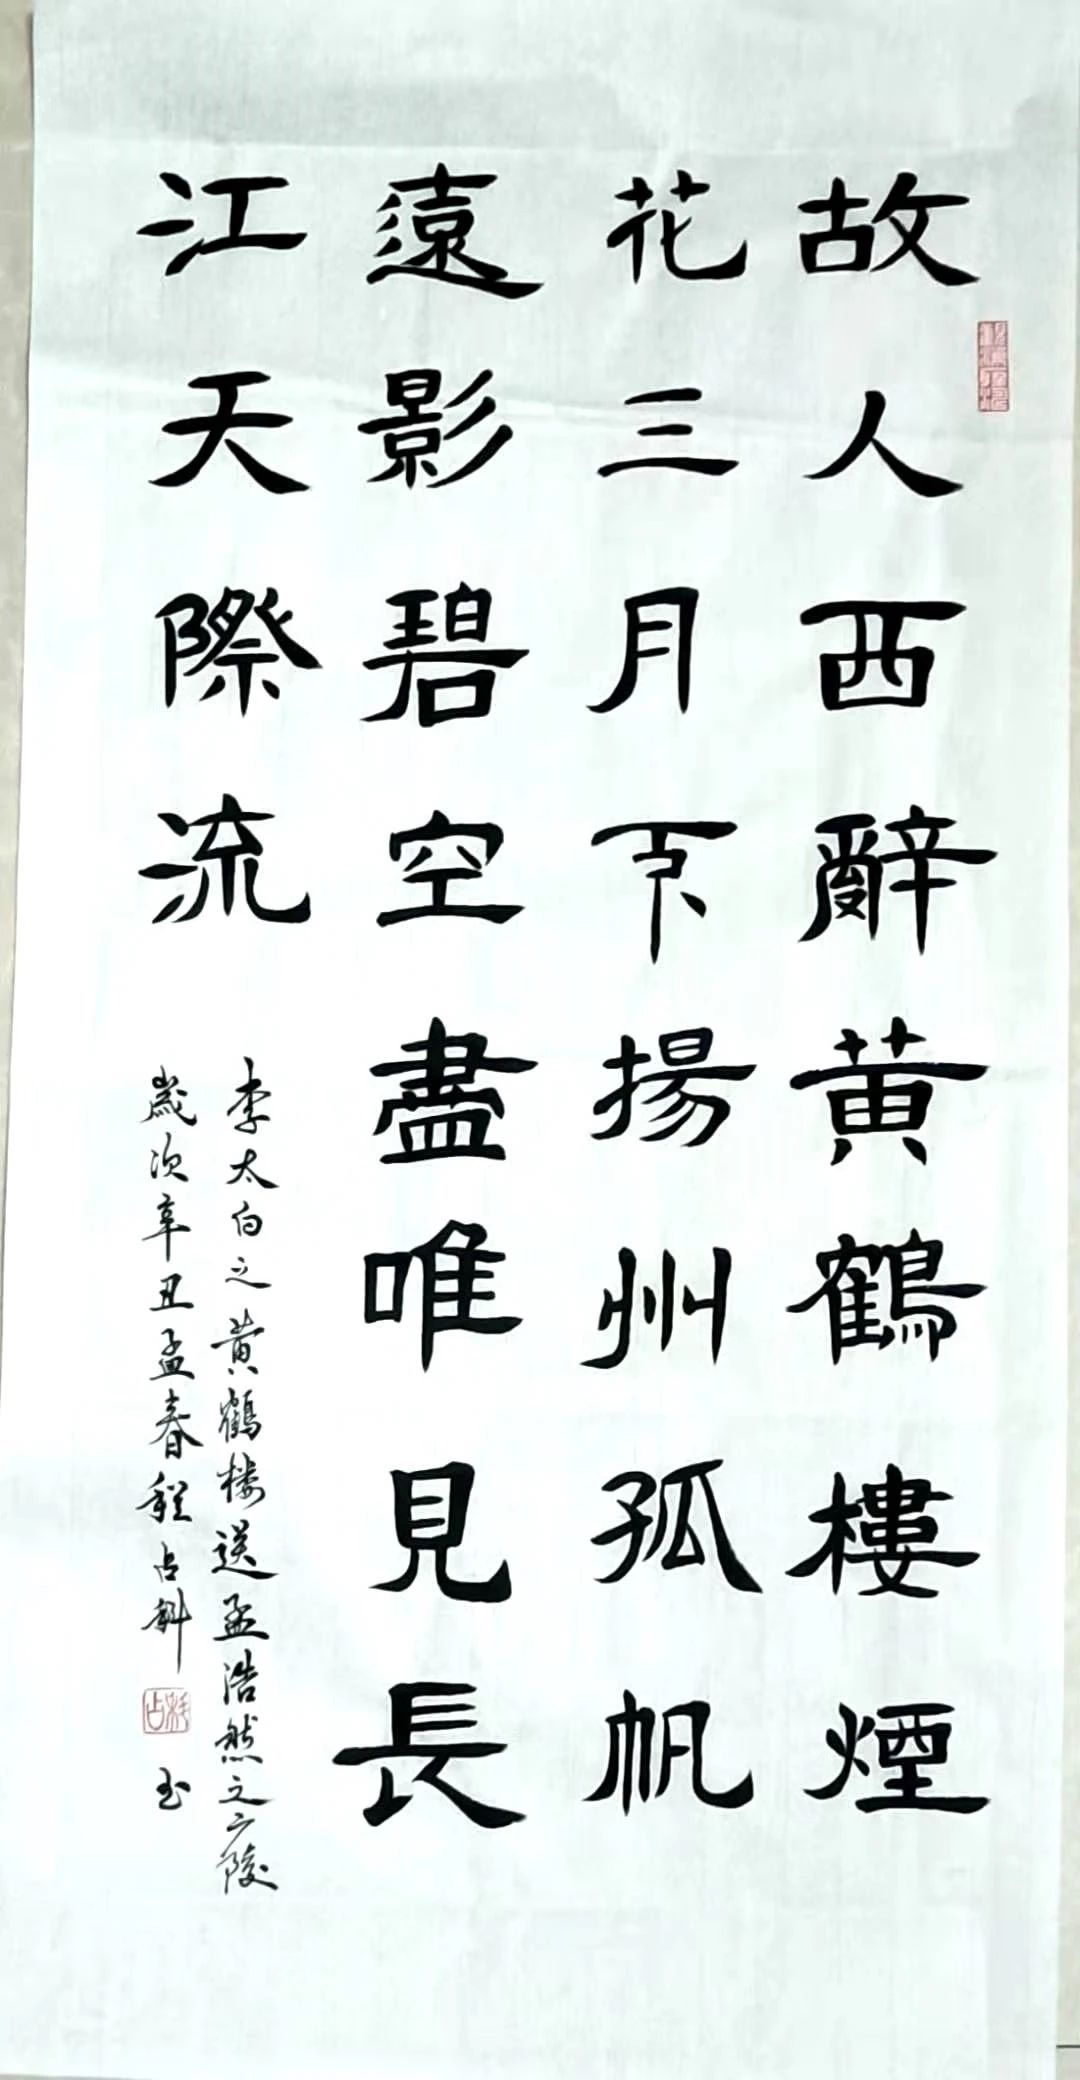 故人西辭黃鶴樓煙
花三月下揚州孤帆
遠影碧空盡唯見長
江天際流
李太白之黄鶴楼送孟浩然之广陵
歲次辛丑孟春程占斛书